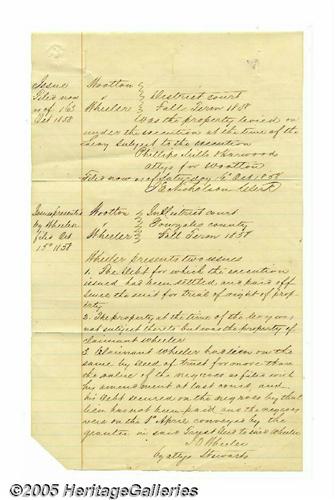 Issue
Filed now
as of 16th
Oct 1858
Wootton
v
Wheeler
District court
Fall Term 1858
Was the property levied on
under the execution at the time of the
levy subject to the execution
Phillips Mills &
attys for Wootton
Filed now as of Saturday 16th Oct 1858
Nicholson Clerk
Issues presented
by Wheeler
filed Oct
15th 1858
Wootton
v
Wheeler
In District court
Gonzales county
Fall Term 1858
Wheeler presents two issues
1. The debt for which the execution
issued has been settled and paid off
since the suit for trial of right of prop
erty
2. The property at the time of the levy was
not subject thereto but was the property of
claimant Wheeler
3. Claimant Wheeler had lien on the
same by deed of trust for more than
the value of the negroes as filed with
his amendment at last court, and
his debt secured on the negroes by that
lien has not been paid, and the negroes
were on the 8th April conveyed by the
grantor in said Trust Deed to said Wheeler
J O Wheeler
by attys Stewarts
© 2005 HeritageGalleries